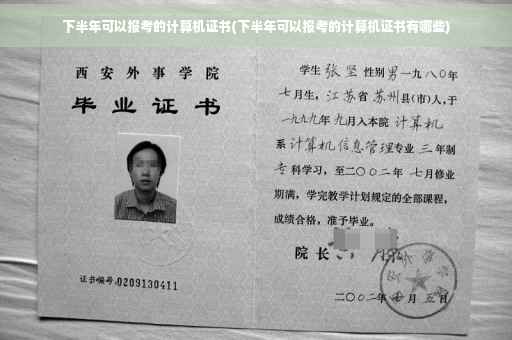 下半年可以报考的计算机证书(下半年可以报考的计算机证书有哪些)
西安外事学院
毕业证书
证书编号:0209130411
学生 张坚 性别 男 一九八〇年
七月生，江苏省 苏州县(市)人，于
一九九九年 九月入本院 计算机
系 计算机信息管理专业 三 年制
专科学习，至二〇〇二年 七月修业
期满，学完教学计划规定的全部课程，
成绩合格，准予毕业。
院长
二〇〇二年 月 五日